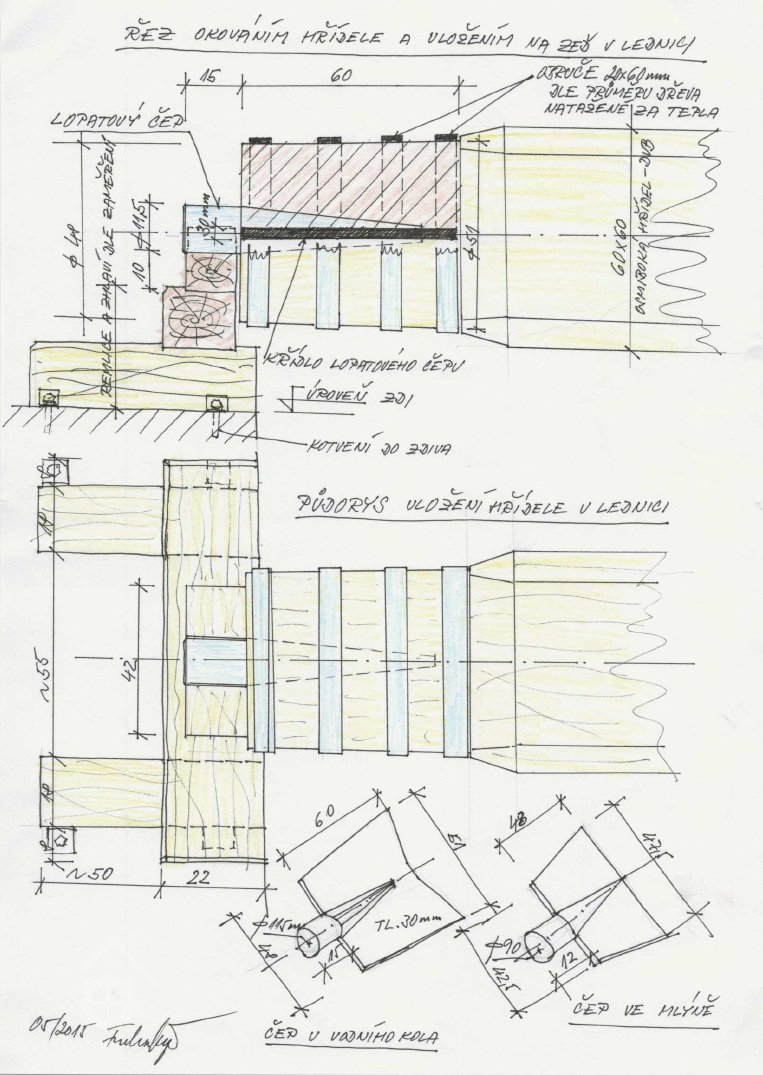 ŘEZ OKOVÁNÍM HŘÍDELE A ULOŽENÍM NA ZEĎ V LEDNICI
15
60
OBRUČE 20x60mm
DLE PRŮMĚRU DŘEVA
NATAŽENÉ ZA TEPLA
LOPATOVÝ ČEP
ϕ 48
REMLICE A ZHLAVÍ DLE ZAMĚŘENÍ
10
ϕ 11,5
30mm
ϕ 51
60x60
OSMIBOKÁ HŘÍDEL-DUB
KŘÍDLO LOPATOVÉHO ČEPU
ÚROVEŇ ZDI
KOTVENÍ DO ZDIVA
PŮDORYS ULOŽENÍ HŘÍDELE V LEDNICI
8
18
~55
42
18
8
~50
22
60
51
ϕ115m
TL.30mm
15
48
ČEP U VODNÍHO KOLA
48
47,5
ϕ90
12
42,5
ČEP VE MLÝNĚ
05/2015